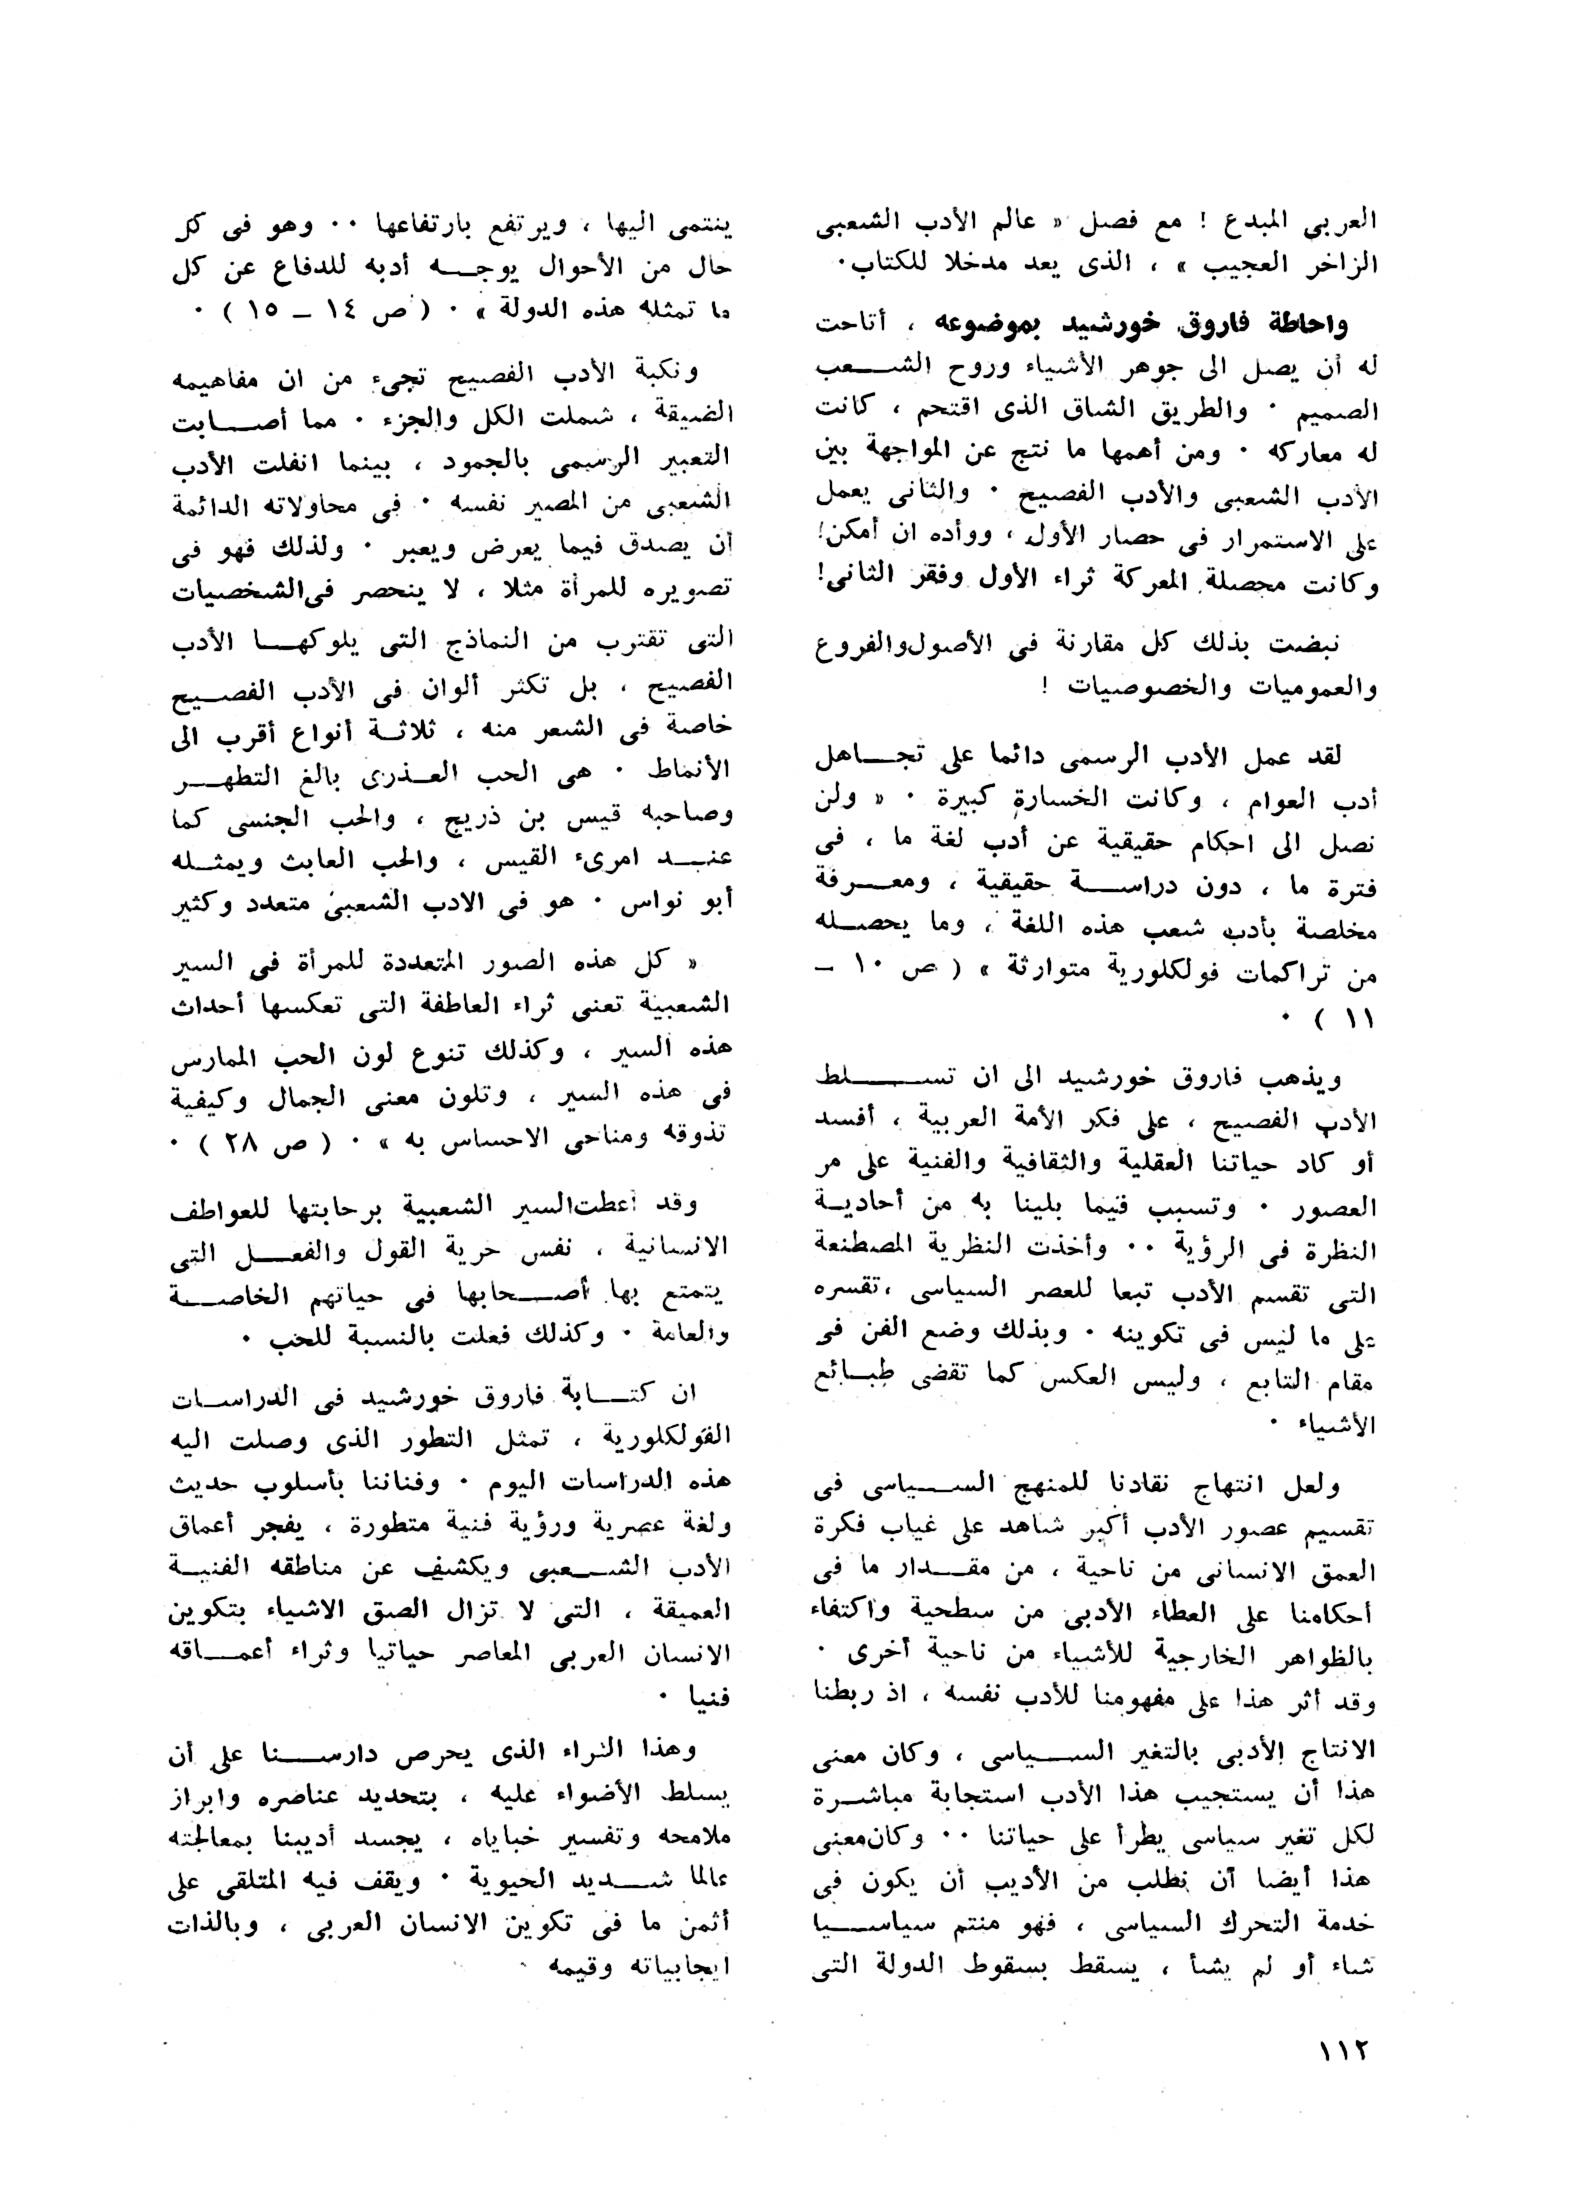 العربى المبدع ! مع فصل « عالم الأدب الشعبى
الزاخر العجيب » ، الذى يعد مدخلا للكتاب٠
واحاطة فاروق خورشيد بموضوعه ، أتاحت
له أن يصل الى جوهر الأشياء وروح الشعب
الصميم ٠ والطريق الشاق الذى اقتحم ، كانت
له معاركه ٠ ومن أهمها ما نتج عن المواجهة بين
الأدب الشعبى والأدب الفصيح ٠ والثانى يعمل
على الاستمرار فى حصار الأول ، ووأده ان أمكن!
وكانت محصلة المعركة ثراء الأول وفقر الثانى!
نبضت بذلك كل مقارنة فى الأصول والفروع
والعموميات والخصوصيات !
لقد عمل الأدب الرسمى دائما على تجاهل
أدب العوام ، وكانت الخسارة كبيرة ٠ « ولن
نصل الى احكام حقيقية عن أدب لغة ما ، فى
فترة ما ، دون دراسة حقيقية ، ومعرفة
مخلصة بأدب شعب هذه اللغة ، وما يحصله
من تراكمات فولكلورية متوارثة » ( ص ١٠ –
١١ ) ٠
ويذهب فاروق خورشيد الى ان تسلط
الأدب الفصيح ، على فكر الأمة العربية ، أفسد
أو كاد حياتنا العقلية والثقافية والفنية على مر
العصور ٠ وتسبب فيما بلينا به من أحادية
النظرة فى الرؤية ٠٠ وأخذت النظرية المصطنعة
التى تقسم الأدب تبعا للعصر السياسى ، تقسره
على ما ليس فى تكوينه ٠ وبذلك وضع الفن فى
مقام التابع ، وليس العكس كما تقضى طبائع
الأشياء ٠
ولعل انتهاج نقادنا للمنهج السياسى فى
تقسيم عصور الأدب أكبر شاهد على غياب فكرة
العمق الانسانى من ناحية ، من مقدار ما فى
أحكامنا على العطاء الأدبى من سطحية واكتفاء
بالظواهر الخارجية للأشياء من ناحية أخرى ٠
وقد أثر هذا على مفهومنا للأدب نفسه ، اذ ربطنا
الانتاج الأدبى بالتغير السياسى ، وكان معنى
هذا أن يستجيب هذا الأدب استجابة مباشرة
لكل تغير سياسى يطرأ على حياتنا ٠٠ وكان معنى
هذا أيضا أن نطلب من الأديب أن يكون فى
خدمة التحرك السياسى ، فهو منتم سياسيا
شاء أو لم يشأ ، يسقط بسقوط الدولة التى
ينتمى اليها ، ويرتفع بارتفاعها ٠٠ وهو فى كل
حال من الأحوال يوجه أدبه للدفاع عن كل
ما تمثله هذه الدولة » ٠ ( ص ١٤ – ١٥ ) ٠
ونكبة الأدب الفصيح تجىء من ان مفاهيمه
الضيقة ، شملت الكل والجزء ٠ مما أصابت
التعبير الرسمى بالجمود ، بينما انفلت الأدب
الشعبى من المصير نفسه ٠ فى محاولاته الدائمة
أن يصدق فيما يعرض ويعبر ٠ ولذلك فهو فى
تصويره للمرأة مثلا ، لا ينحصر فى الشخصيات
التى تقترب من النماذج التى يلوكها الأدب
الفصيح ، بل تكثر ألوان فى الأدب الفصيح
خاصة فى الشعر منه ، ثلاثة أنواع أقرب الى
الأنماط ٠ هى الحب العذرى بالغ التطهر
وصاحبه قيس بن ذريح ، والحب الجنسى كما
عند امرىء القيس ، والحب العابث ويمثله
أبو نواس ٠ هو فى الادب الشعبى متعدد وكثير
« كل هذه الصور المتعددة للمرأة فى السير
الشعبية تعنى ثراء العاطفة التى تعكسها أحداث
هذه السير ، وكذلك تنوع لون الحب الممارس
فى هذه السير ، وتلون معنى الجمال وكيفية
تذوقه ومناحى الاحساس به » ٠ ( ص ٢٨ ) ٠
وقد أعطت السير الشعبية برحابتها للعواطف
الانسانية ، نفس حرية القول والفعل التى
يتمتع بها أصحابها فى حياتهم الخاصة
والعامة ٠ وكذلك فعلت بالنسبة للحب ٠
ان كتابة فاروق خورشيد فى الدراسات
الفولكلورية ، تمثل التطور الذى وصلت اليه
هذه الدراسات اليوم ٠ وفناننا بأسلوب حديث
ولغة عصرية ورؤية فنية متطورة ، يفجر أعماق
الأدب الشعبى ويكشف عن مناطقه الفنية
العميقة ، التى لا تزال الصق الاشياء بتكوين
الانسان العربى المعاصر حياتيا وثراء أعماقه
فنيا ٠
وهذا الثراء الذى يحرص دارسنا على أن
يسلط الأضواء عليه ، بتحديد عناصره وابراز
ملامحه وتفسير خباياه ، يجسد أديبنا بمعالجته
عالما شديد الحيوية ٠ ويقف فيه المتلقى على
أثمن ما فى تكوين الانسان العربى ، وبالذات
ايجابياته وقيمه ٠
١١٢